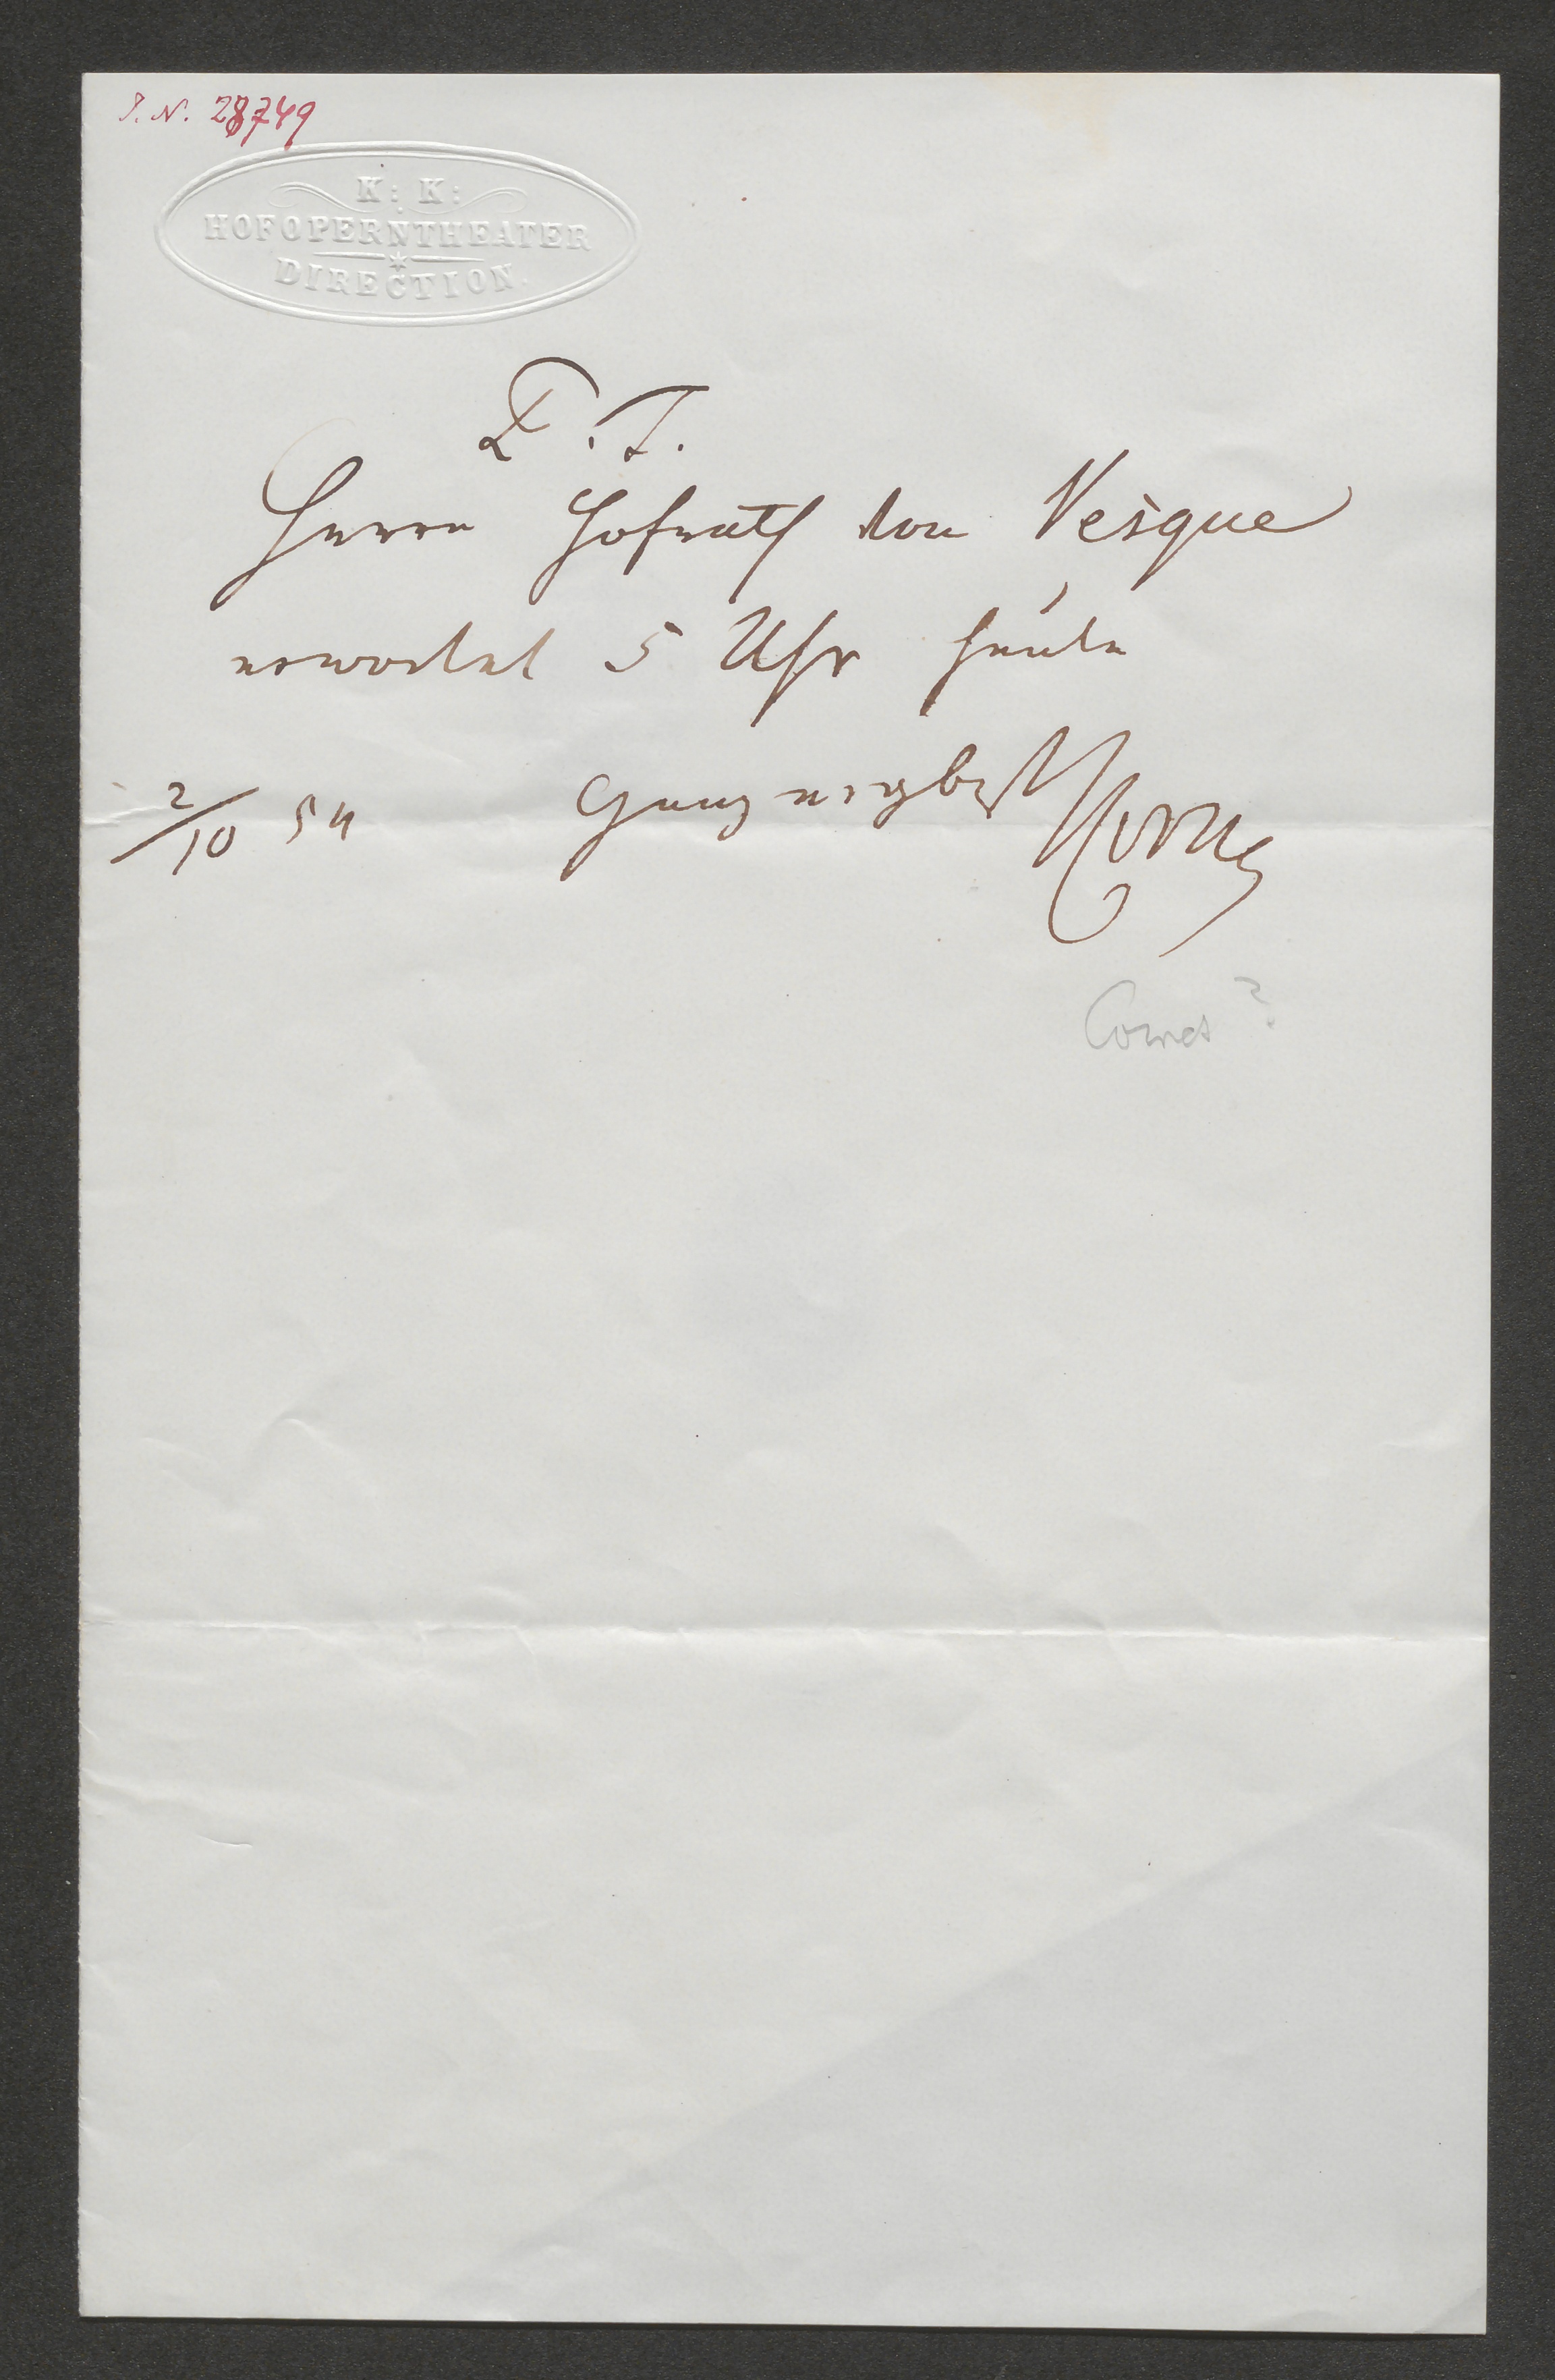 I. N. 28749
K: K:
HOFOPERNTHEATER
DIRECTION.
P. T.
Herrn Hofrath von Vesque
erwartet 5 Uhr heute
2/10 54 Ganz ergebenst
Cornet?